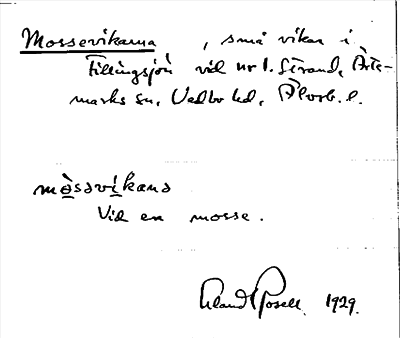 Mossevikarna, små vikar i
Tillingsjön vid nr 1. Strand, Årte-
marks sn, Vedbo hd, Älvsb. l.
mòssvíkana
Vid en mosse.
Erland Rosell. 1929.